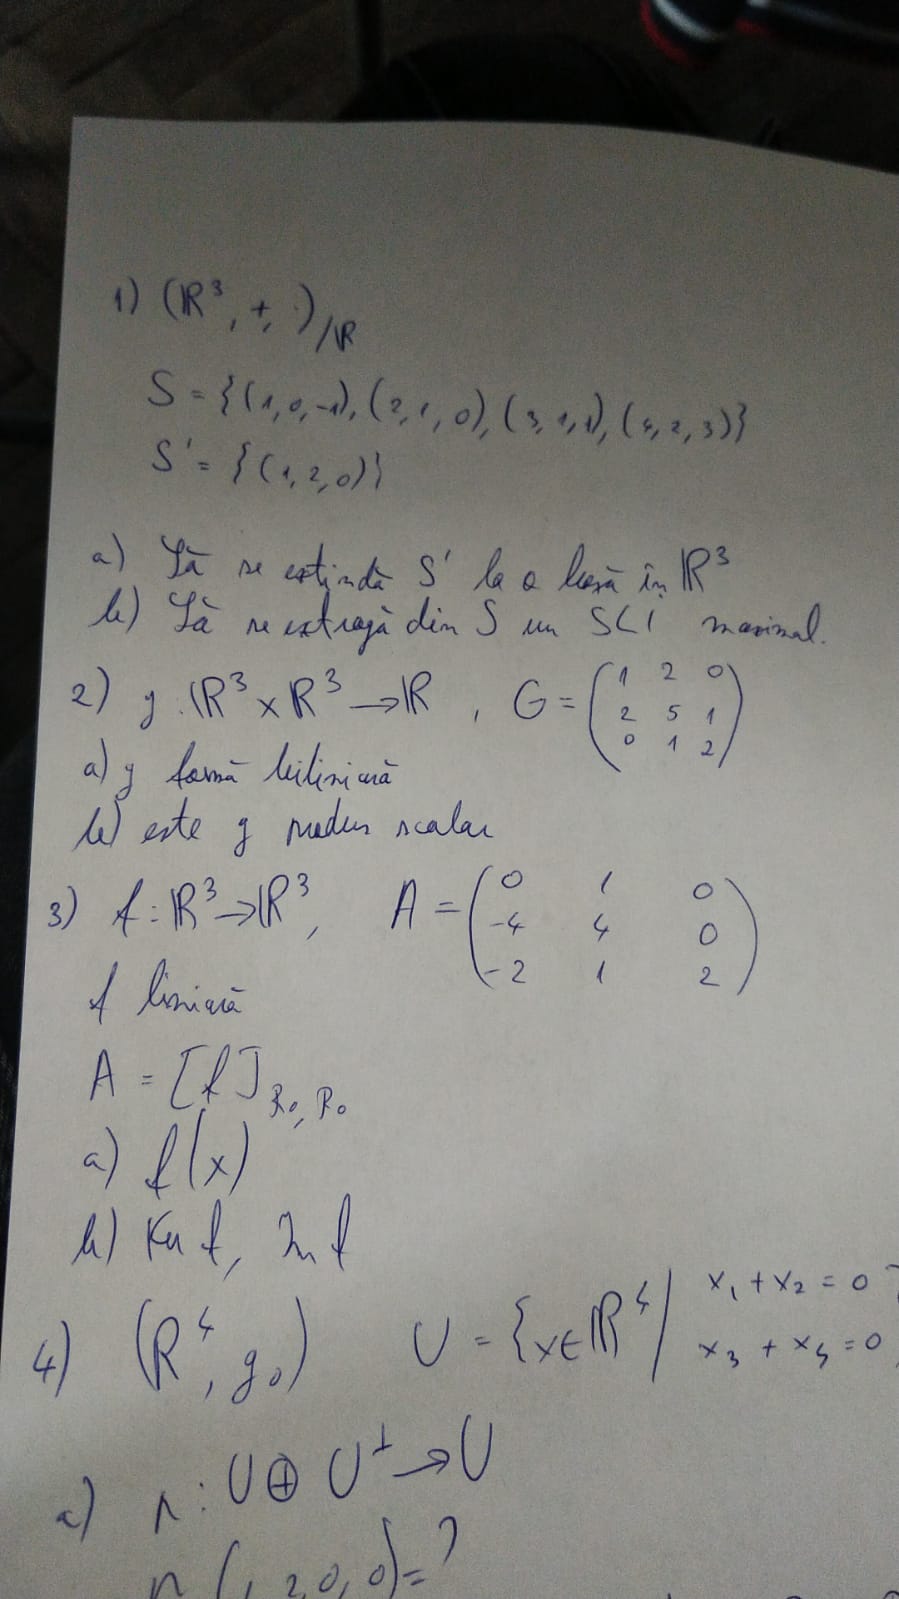 1) (ℝ³, +, ·)/ℝ
S = {(1,0,-1), (2,1,0), (3,1,1), (4,2,3)}
S' = {(1,2,0)}
a) Să se extindă S' la o bază în ℝ³
b) Să se extragă din S un SLI maximal.
2) g : ℝ³ × ℝ³ → ℝ, G = (1 2 0
2 5 1
0 1 2)
a) g formă biliniară
b) este g produs scalar
3) f : ℝ³ → ℝ³, A = (0 1 0
-4 4 0
-2 1 2)
f liniară
A = [f]R₀,R₀
a) f(x)
b) Ker f, Im f
4) (ℝ⁴, g₀) U = {x∈ℝ⁴ | x₁ + x₂ = 0
x₃ + x₄ = 0
a) p : U ⊕ U⊥ → U
p(1,2,0,0) = ?